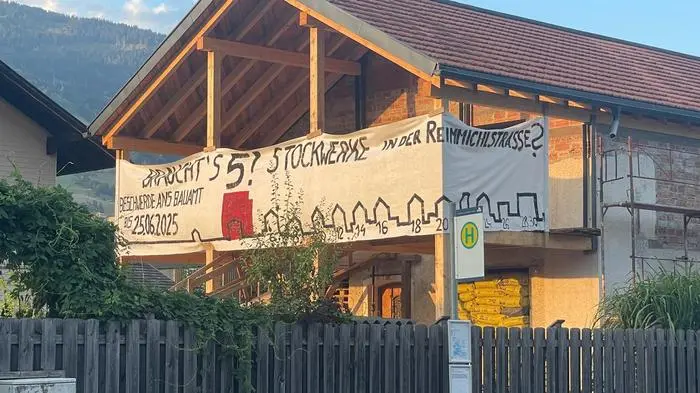 BRAUCHT'S 5!? STOCKWERKE IN DER REIMMICHLSTRASSE?
BESCHWERDE ANS BAUAMT
BIS 25.06.2025
12 14 16 18 20
H